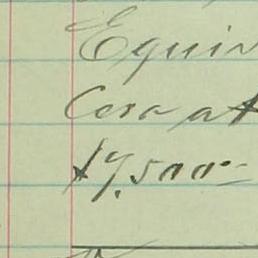 Equin
Cera at
$7,500.00